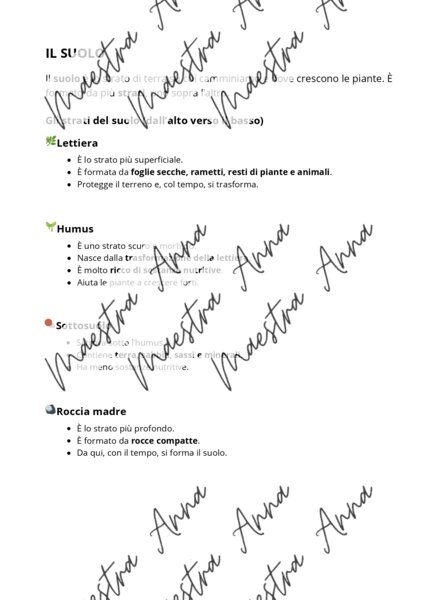 IL SUOLO
Il suolo è lo strato di terra su cui camminiamo e dove crescono le piante. È
formato da più strati, uno sopra l'altro.
Gli strati del suolo (dall'alto verso il basso)
Lettiera
È lo strato più superficiale.
È formata da foglie secche, rametti, resti di piante e animali.
Protegge il terreno e, col tempo, si trasforma.
Humus
È uno strato scuro e morbido.
Nasce dalla trasformazione della lettiera.
È molto ricco di sostanze nutritive.
Aiuta le piante a crescere forti.
Sottosuolo
Si trova sotto l'humus.
Contiene terra, sabbia, sassi e minerali.
Ha meno sostanze nutritive.
Roccia madre
È lo strato più profondo.
È formato da rocce compatte.
Da qui, con il tempo, si forma il suolo.
Maestra Anna
Maestra Anna
Maestra Anna
Maestra Anna
Maestra Anna
Maestra Anna
Maestra Anna
Maestra Anna
Maestra Anna